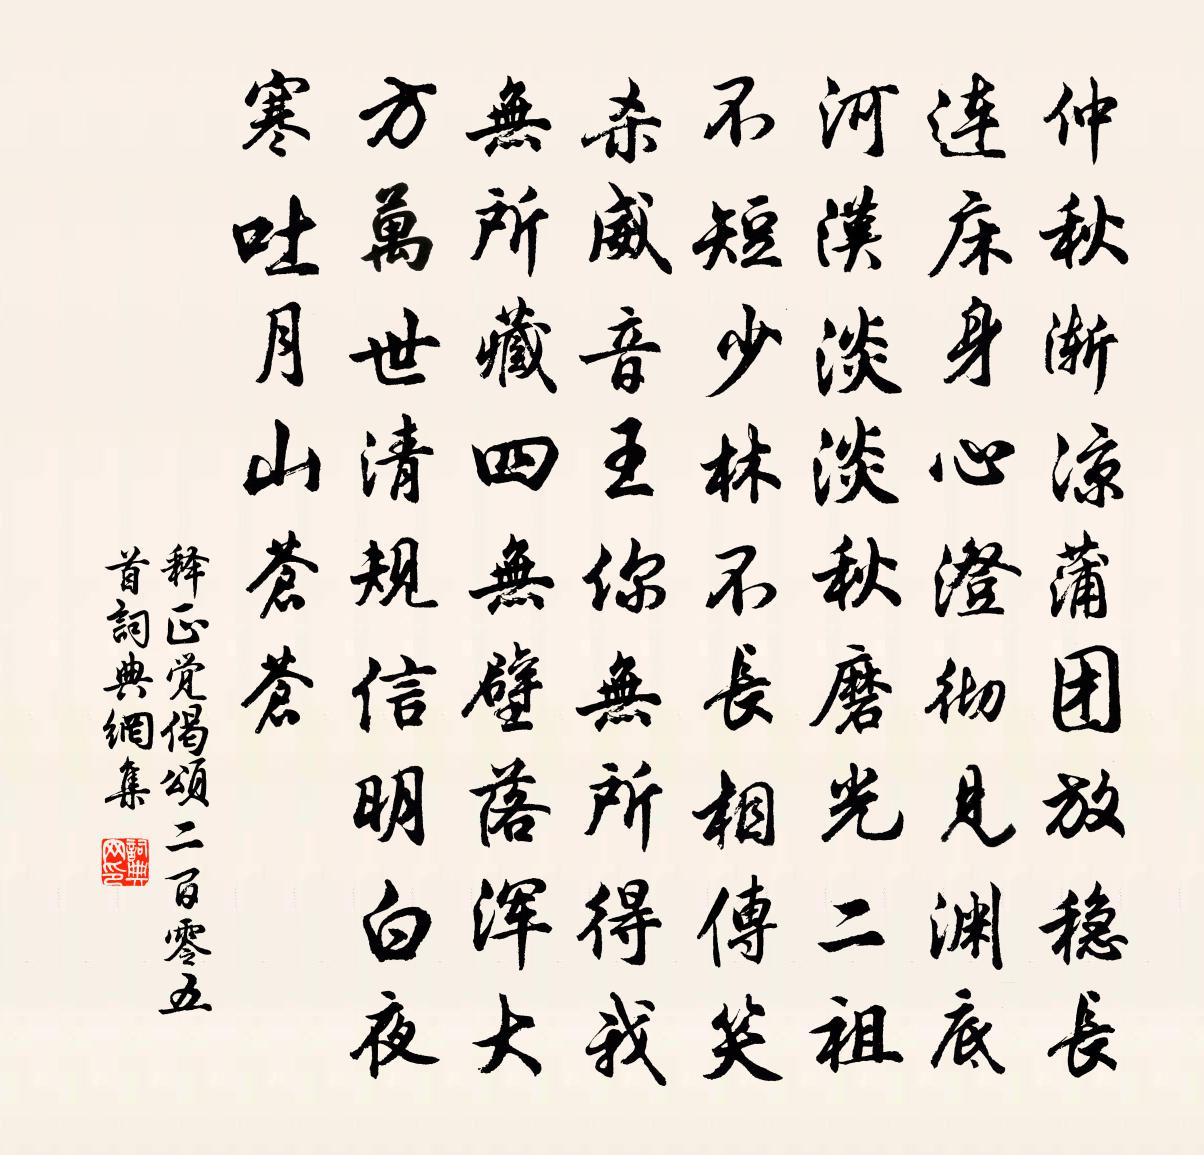 仲秋渐凉蒲团放稳長
連床身心澄彻見渊底
河漢淡淡秋磨光二祖
不短少林不長相傳笑
杀威音王你無所得我
無所藏四無壁落浑大
方萬世清規信明白夜
寒吐月山蒼蒼
释正觉偈頌二百零五
首詞典網集
詞典网印